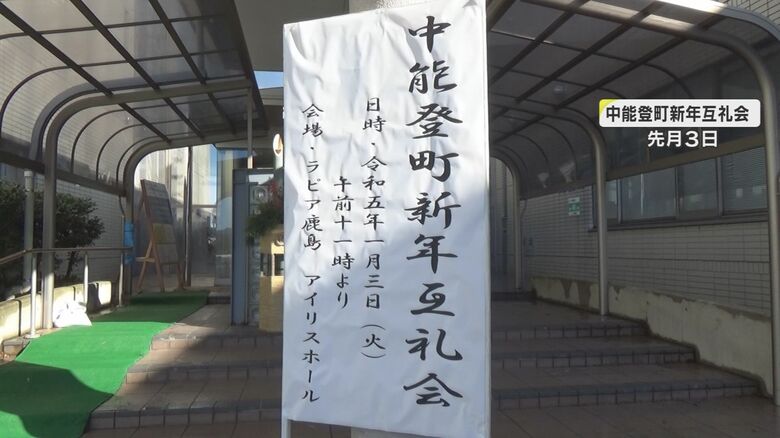 中能登町新年互礼会
日時・令和五年一月三日（火）
午前十一時より
会場・ラピア鹿島　アイリスホール
中能登町新年互礼会
先月3日